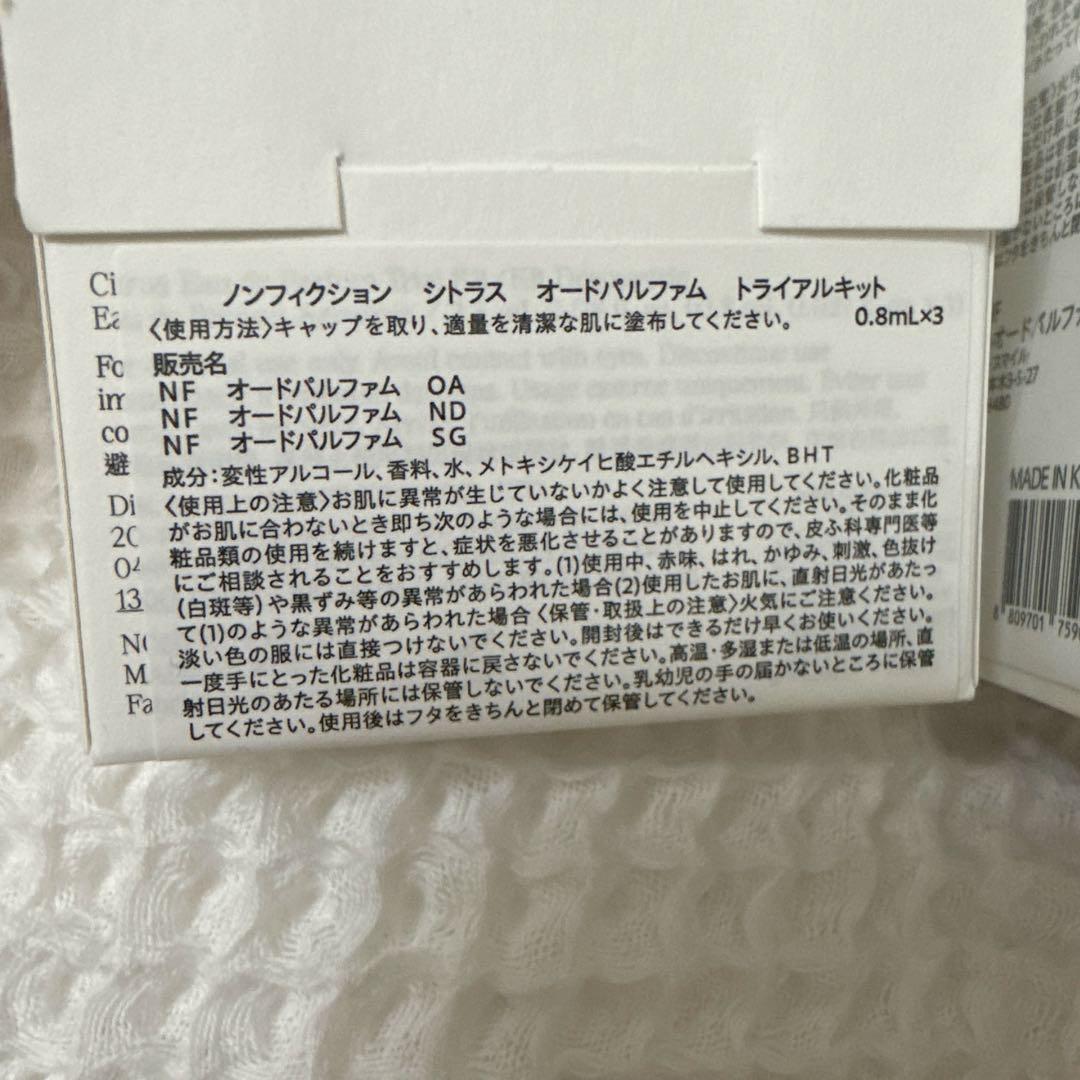 ノンフィクション シトラス オードパルファム トライアルキット
〈使用方法〉キャップを取り、適量を清潔な肌に塗布してください。 0.8mL×3
販売名
NF オードパルファム OA
NF オードパルファム ND
NF オードパルファム SG
成分:変性アルコール、香料、水、メトキシケイヒ酸エチルヘキシル、BHT
〈使用上の注意〉お肌に異常が生じていないかよく注意して使用してください。化粧品
がお肌に合わないとき即ち次のような場合には、使用を中止してください。そのまま化
粧品類の使用を続けますと、症状を悪化させることがありますので、皮ふ科専門医等
にご相談されることをおすすめします。(1)使用中、赤味、はれ、かゆみ、刺激、色抜け
(白斑等)や黒ずみ等の異常があらわれた場合(2)使用したお肌に、直射日光があたっ
て(1)のような異常があらわれた場合〈保管・取扱上の注意〉火気にご注意ください。
淡い色の服には直接つけないでください。開封後はできるだけ早くお使いください。
一度手にとった化粧品は容器に戻さないでください。高温・多湿または低温の場所、直
射日光のあたる場所には保管しないでください。乳幼児の手の届かないところに保管
してください。使用後はフタをきちんと閉めて保管してください。
Ci
Ea
Fo
im
co
避
Di
20
04
13
M
Fa
オードパルファ
スマイル
MADE IN K
8 809701 759